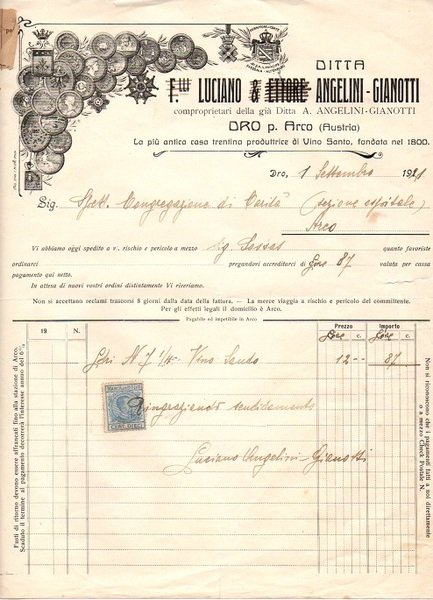 DITTA
F.lli LUCIANO & ETTORE ANGELINI-GIANOTTI
comproprietari della già Ditta A. ANGELINI-GIANOTTI
DRO p. Arco (Austria)
La più antica casa trentina produttrice di Vino Santo, fondata nel 1800.
Dro, 1 Settembre 1921
Sig. Congregazione di Carità (sezione ospitale)
Arco
Vi abbiamo oggi spedito a v/ rischio e pericolo a mezzo sig. quanto favoriste
ordinarci pregandovi accreditarci di Lire 87 valuta per cassa
pagamento qui netto.
In attesa di nuovi vostri ordini distintamente Vi riveriamo.
Non si accettano reclami trascorsi 8 giorni dalla data della fattura. - La merce viaggia a rischio e pericolo del committente.
Per gli effetti legali il domicilio è Arco.
Pagabile ed impetibile in Arco
19 N. Prezzo Importo
Lire c. Lire c.
Litri N. 7 1/4 Vino Santo 12 87
Ringraziando sentitamente
CENT. DIECI
Luciano Angelini-Gianotti
Fusti di ritorno devono essere affrancati fino alla stazione di Arco.
Scaduto il termine al pagamento decorrerà l'interesse annuo del 6%
Non si riconoscono che i pagamenti fatti a noi direttamente
o a mezzo Check Postale N.